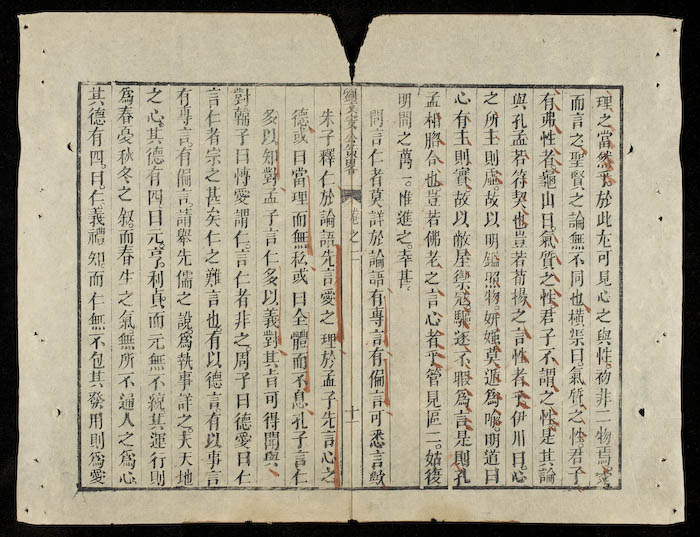 理之當然乎於此尤可見心之與性初非二物焉
而言之聖賢之論無不同也橫渠曰氣質之性君子
有弗性者龜山曰氣質之性君子不謂之性是其論
與孔孟若符契也豈若荀揚之言性者乎伊川曰心
之所主則虛故以明鑑照物妍媸莫遁為喻明道曰
心有主則實故以敝屋禦寇驅逐不暇為言是則孔
孟相脗合也豈若佛老之言心者乎管見區二姑復
明問之萬一惟進之幸甚
問言仁者莫詳於論語有專言有偏言可悉言歟
朱子釋仁於論語先言愛之理於孟子先言心之
德或曰當理而無私或曰全體而不息孔子言仁
多以知對孟子言仁多以義對其旨可得聞與
對韓子曰博愛謂仁言仁者非之周子曰德愛曰仁
言仁者宗之甚矣仁之難言也有以德言有以事言
有專言有偏言請舉先儒之說為執事詳之夫天地
之心其德有四曰元亨利貞而元無不統其運行則
為春夏秋冬之敘而春生之氣無所不通人之為心
其德有四曰仁義禮知而仁無不包其發用則為愛
卷之二
十二